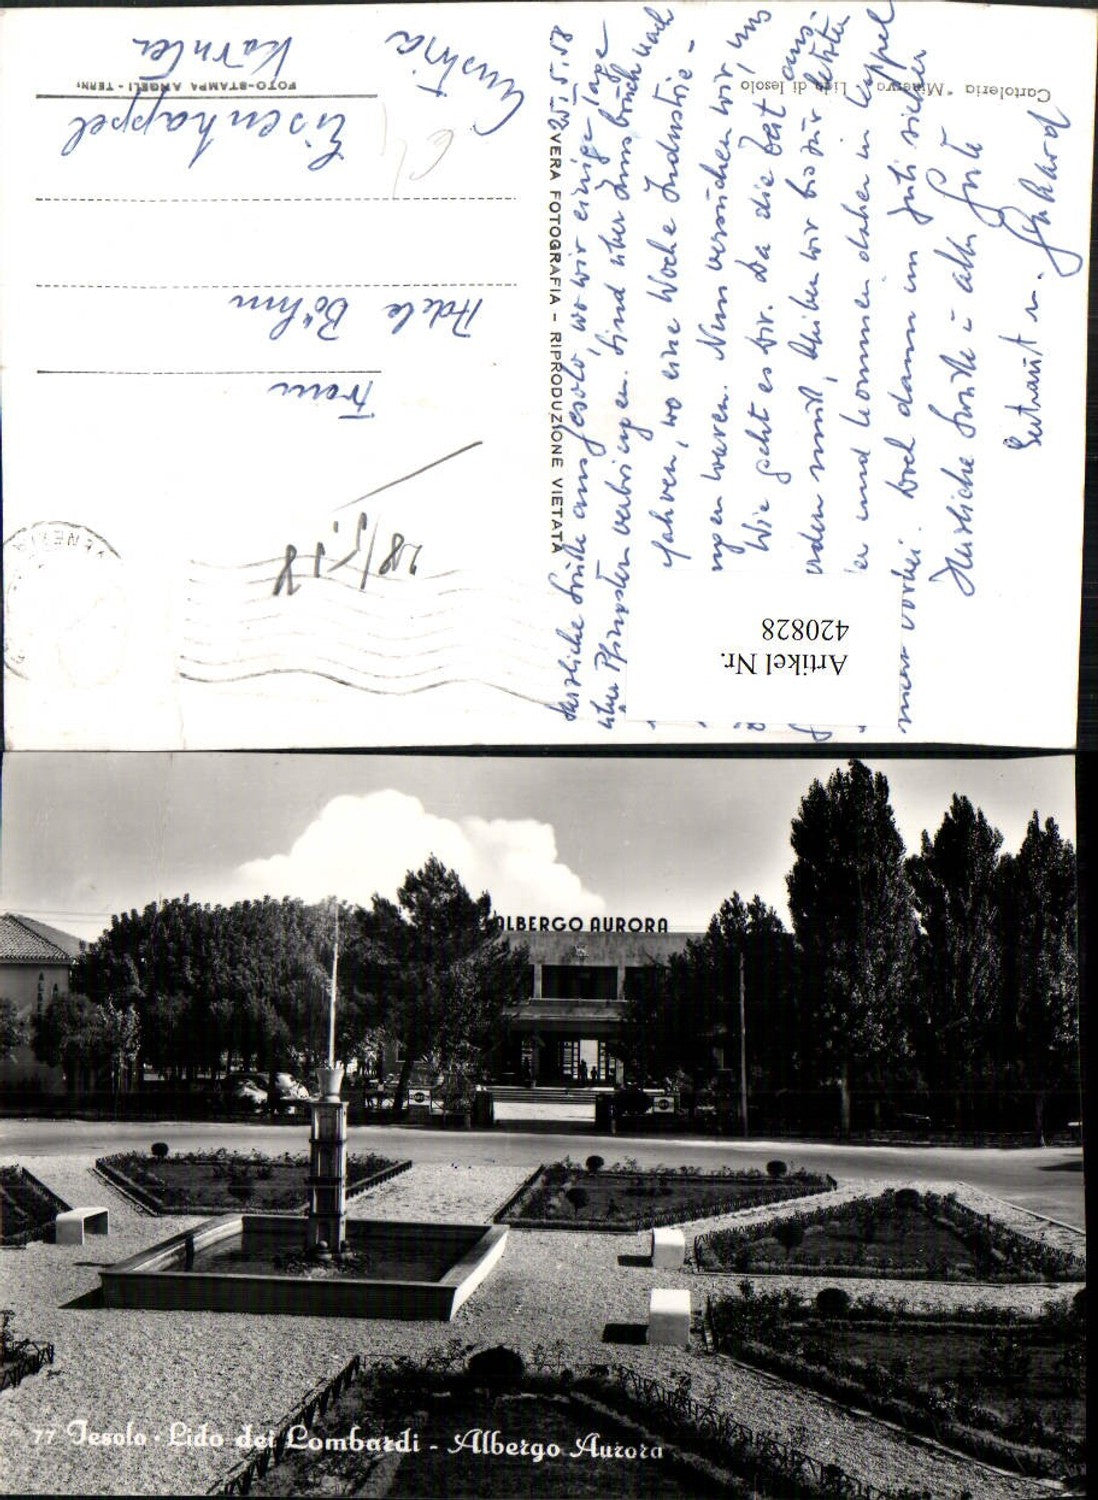 Cartoleria "Minerva" Lido di Iesolo
VERA FOTOGRAFIA - RIPRODUZIONE VIETATA
FOTO-STAMPA ANGELI - TERNI
22.5.58
Herzliche Grüße aus Jesolo, wo wir einige Tage
über Pfingsten verbringen. Sind über Innsbruck nach
fahren, wo eine Woche Industrie-
waren. Nun versuchen wir, uns
Wie geht es Dir. Da die Zeit aus-
muß, bleiben wir bis zur letzten
und kommen daher in Kappel
vorbei. Doch dann im Juli sicher
Herzliche Grüße u alles Gute
Gertraut u. Gerhard
Frau
Adele Böhm
Eisenkappel
Kärnten
Austria
28/5. 58
Artikel Nr.
420828
ALBERGO AURORA
77 Iesolo - Lido dei Lombardi - Albergo Aurora